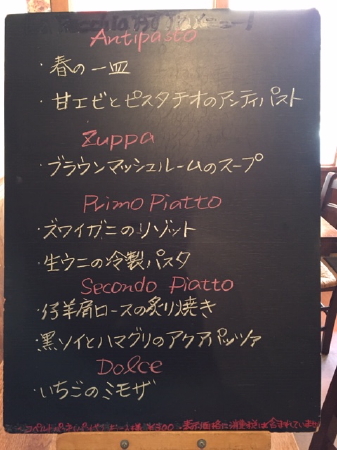 Antipasto
・春の一皿
・甘エビとピスタチオのアンティパスト
Zuppa
・ブラウンマッシュルームのスープ
Primo Piatto
・ズワイガニのリゾット
・生ウニの冷製パスタ
Secondo Piatto
・仔羊肩ロースの炙り焼き
・黒ソイとハマグリのアクアパッツァ
Dolce
・いちごのミモザ